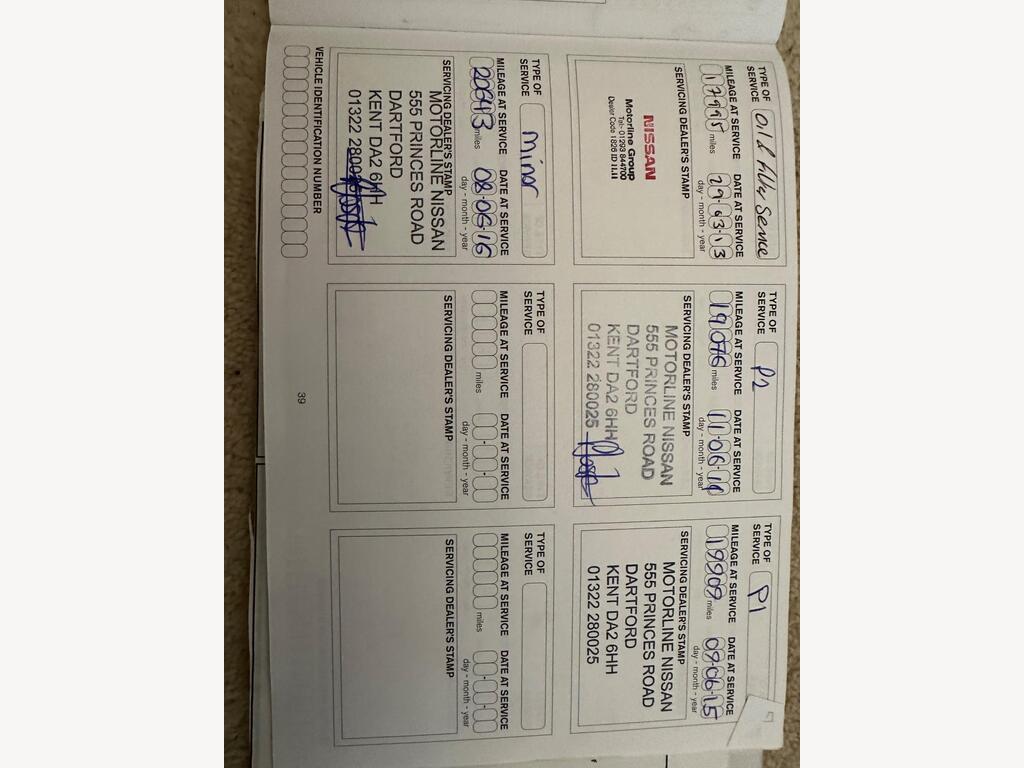 TYPE OF SERVICE Oil & filter Service
MILEAGE AT SERVICE DATE AT SERVICE
17995 miles 29·03·13
day - month - year
SERVICING DEALER'S STAMP
NISSAN
Motorline Group
Tel:- 01293 844700
TYPE OF SERVICE P2
MILEAGE AT SERVICE DATE AT SERVICE
19076 miles 11·06·14
day - month - year
SERVICING DEALER'S STAMP
MOTORLINE NISSAN
555 PRINCES ROAD
DARTFORD
KENT DA2 6HH
01322 280025
TYPE OF SERVICE P1
MILEAGE AT SERVICE DATE AT SERVICE
19909 miles 09·06·15
day - month - year
SERVICING DEALER'S STAMP
MOTORLINE NISSAN
555 PRINCES ROAD
DARTFORD
KENT DA2 6HH
01322 280025
TYPE OF SERVICE Minor
MILEAGE AT SERVICE DATE AT SERVICE
20643 miles 08·06·16
day - month - year
SERVICING DEALER'S STAMP
MOTORLINE NISSAN
555 PRINCES ROAD
DARTFORD
KENT DA2 6HH
01322 280025
TYPE OF SERVICE
MILEAGE AT SERVICE DATE AT SERVICE
miles
day - month - year
SERVICING DEALER'S STAMP
TYPE OF SERVICE
MILEAGE AT SERVICE DATE AT SERVICE
miles
day - month - year
SERVICING DEALER'S STAMP
VEHICLE IDENTIFICATION NUMBER
39